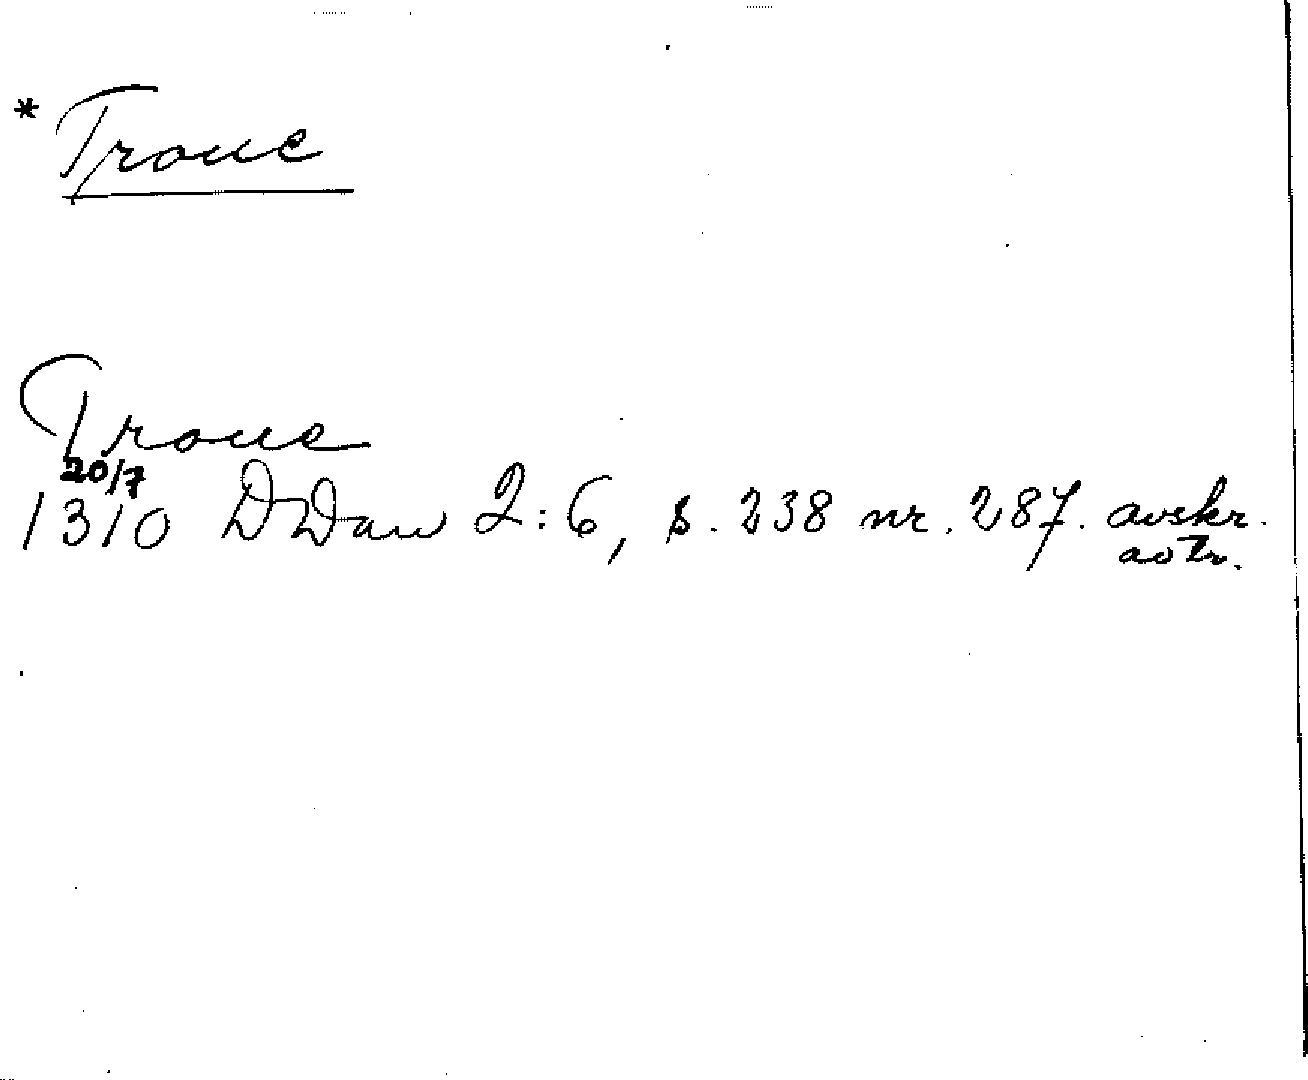 * Trone
Trone
20/7
1310 DDan 2:6, s. 238 nr. 287. avskr.
avtr.